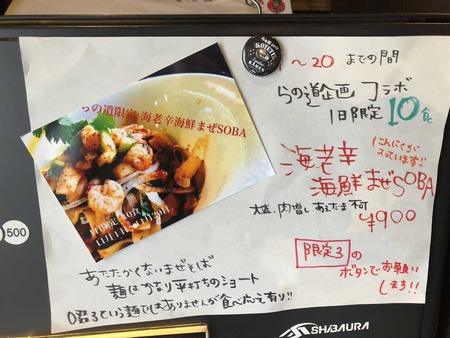 〜20 までの間
らの道企画 コラボ
1日限定 10食
海老辛
海鮮まぜSOBA
にんにくが
入っています!!
大盛、肉増し、あえたま不可
¥900
限定3 の
ボタンでお願い
します!!
らの道限定 海老辛海鮮まぜSOBA
あたたかくないまぜそば
麺はかなり平打ちのショート
○○るという麺ではありませんが食べ応え有り!!
500
SHIBAURA